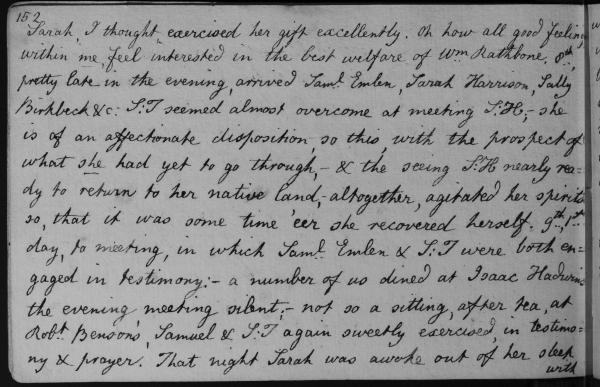 152
Sarah, I thought, exercised her gift excellently. Oh how all good feelings
within me, feel interested in the best welfare of Wm Rathbone, 8th,
pretty late in the evening, arrived Saml. Emlen, Sarah Harrison, Sally
Birkbeck &c: S:T seemed almost overcome at meeting S:H;- she
is of an affectonate disposition, so this, with the prospect of
what she had yet to go through,- & the seeing S:H nearly rea=
dy to return to her native land,- altogether, agitated her spirits
so, that it was some time 'eer she recovered herself. 9th, 1st
day, to meeting, in which Saml. Emlen & S:T were both en=
gaged in testimony:- a number of us dined at Isaac Hadwins
the evening meeting silent,- not so a sitting, after tea, at
Robt. Benson's, Samuel & S:T again sweetly exercised, in testimo=
ny & prayer. That night Sarah was awoke out of her sleep
with